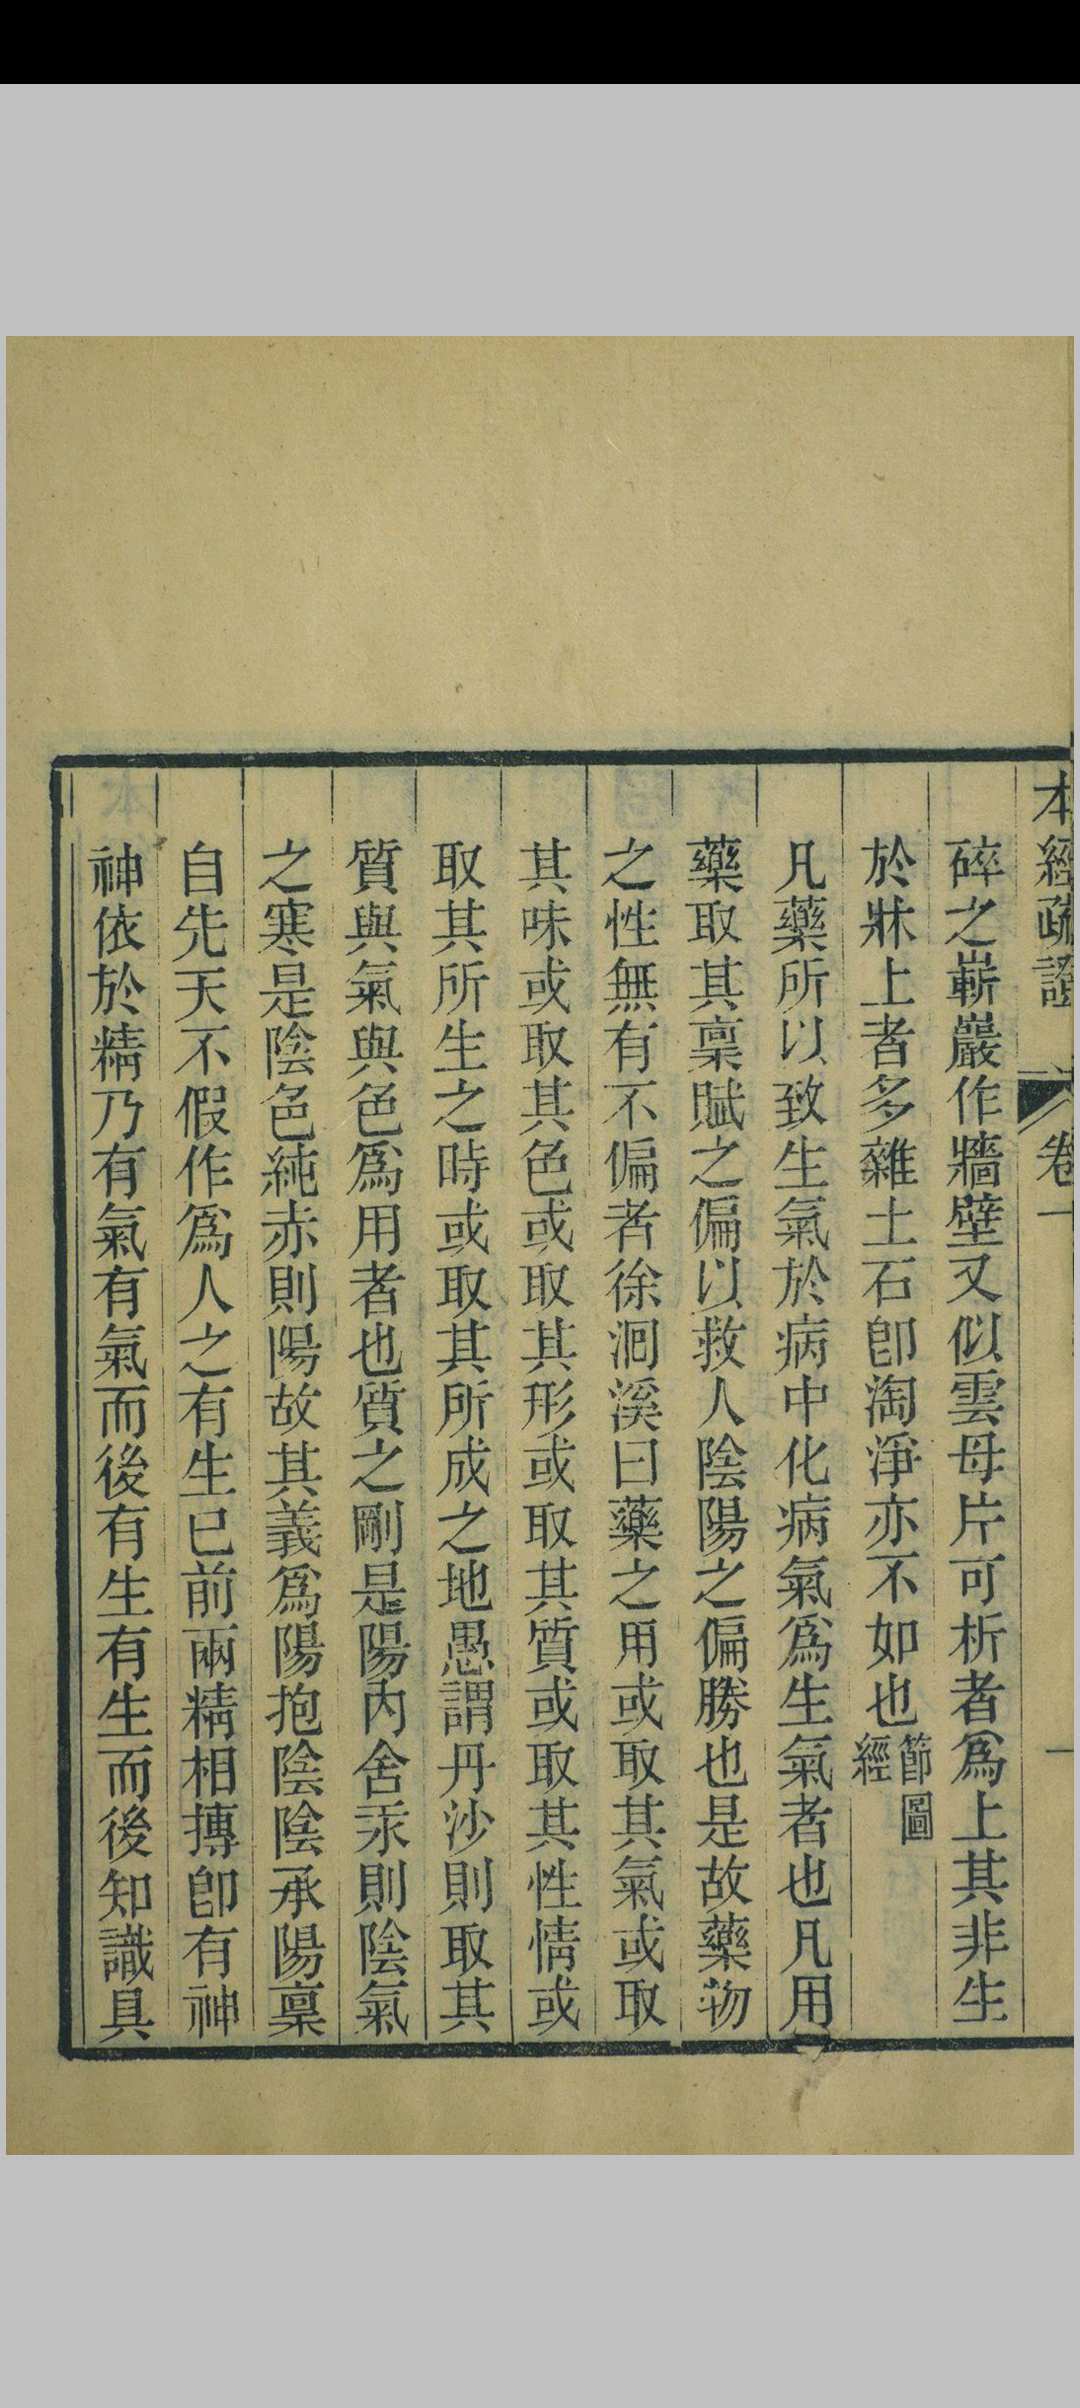 本經疏證 卷一 一
碎之嶄巖作牆壁又似雲母片可析者爲上其非生
於牀上者多雜土石卽淘淨亦不如也節圖經
凡藥所以致生氣於病中化病氣爲生氣者也凡用
藥取其稟賦之偏以救人陰陽之偏勝也是故藥物
之性無有不偏者徐洄溪曰藥之用或取其氣或取
其味或取其色或取其形或取其質或取其性情或
取其所生之時或取其所成之地愚謂丹沙則取其
質與氣與色爲用者也質之剛是陽內含汞則陰氣
之寒是陰色純赤則陽故其義爲陽抱陰陰承陽稟
自先天不假作爲人之有生已前兩精相摶卽有神
神依於精乃有氣有氣而後有生有生而後知識具